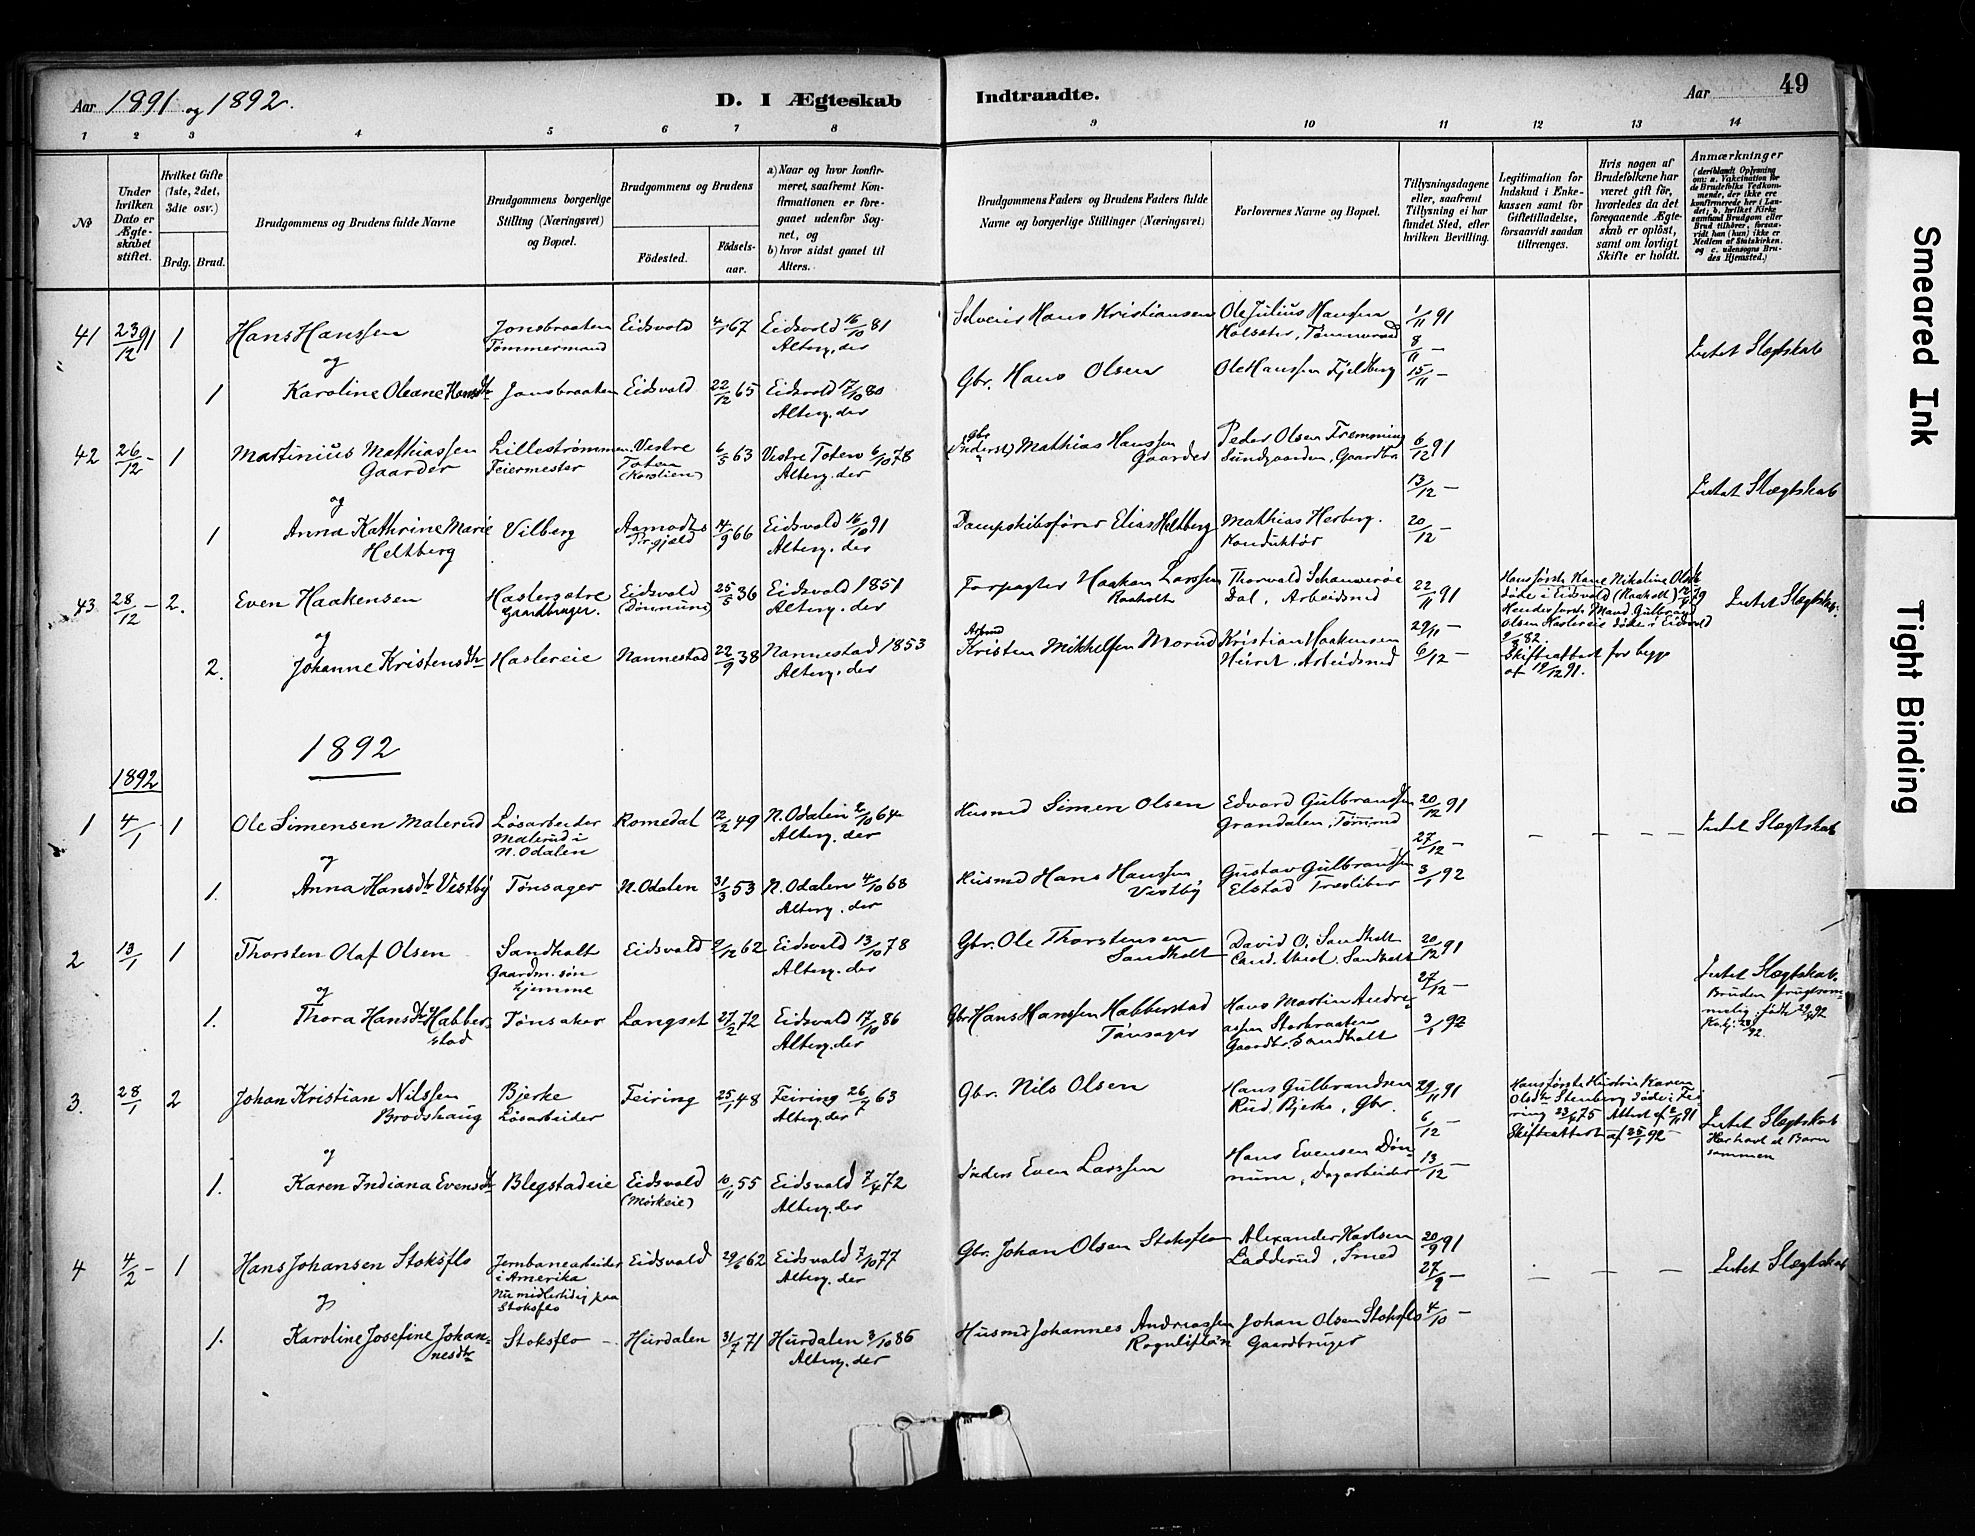 Aar 1891 og 1892.
D. I Ægteskab
Indtraadte.
Aar
49
1 2 3 4 5 6 7 8 9 10 11 12 13 14
№
Under hvilken Dato er Ægteskabet stiftet.
Hvilket Gifte (1ste, 2det, 3die osv.)
Brdg. Brud.
Brudgommens og Brudens fulde Navne
Brudgommens borgerlige Stilling (Næringsvei) og Bopæl.
Brudgommens og Brudens
Födested. Födselsaar.
a) Naar og hvor konfirmeret, saafremt Konfirmationen er foregaaet udenfor Sognet, og
b) hvor sidst gaaet til Alters.
Brudgommens Faders og Brudens Faders fulde Navne og borgerlige Stillinger (Næringsvei)
Forlovernes Navne og Bopæl.
Tillysningsdagene eller, saafremt Tillysning ei har fundet Sted, efter hvilken Bevilling.
Legitimation for Indskud i Enkekassen samt for Giftetilladelse, forsaavidt saadan tiltrænges.
Hvis nogen af Brudefolkene har været gift för, hvorledes da det foregaaende Ægteskab er oplöst, samt om lovligt Skifte er holdt.
Anmærkninger
(deriblandt Oplysning om: a. Vaksination for de Brudefolks Vedkommende, der ikke ere konfirmerede her i Landet; b. hvilket Kirkesamfund Brudgom eller Brud tilhører, forsaavidt han (hun) ikke er Medlem af Statskirken, og c. udensogns Brudes Hjemsted.)
41 23/12 91 1 Hans Hanssen Jonsbraaten Tömmermand Eidsvold 4/1 67 Eidsvold 16/10 81 Alterg. der
Hans Kristiansen Ole Julius Hansen 1/11 91
8/11 –
Intet Slægtskab
og
1 Karoline Oleane Hansdtr Jonsbraaten Eidsvold 22/12 65 Eidsvold 17/10 80 Alterg. der
Gbr. Hans Olsen Ole Hanssen Fjeldberg 15/11 –
42 26/12 – 1 Martinius Mathiassen Gaarder Lillestrømmen Feiermester Vestre Toten 6/5 63 Vestre Toten 6/10 78 Alterg. der
Mathias Hanssen Gaarder Peder Olsen Fremming Sundgaarden, Gaardbr. 6/12 91
13/12 –
Intet Slægtskab
og
1 Anna Kathrine Marie Heltberg Vilberg Aamodts Prgjæld 14/9 66 Eidsvold 16/10 91 Alterg. der
Dampskibsfører Elias Heltberg Mathias Herberg. Konduktör 20/12 –
43 28/12 – 2. Even Haakensen Haslersætre Gaardbruger. Eidsvold 25/5 36 Eidsvold 1851 Alterg. der
Forpagter Haakon Larssen Raaholt Thorvald Dal, Arbeidsmd 22/11 91
Hans første Kone Nikoline Olsdtr døde i Eidsvold (Raaholt)
Hendes første Mand Gulbrand Olsen Haslereie døde i Eidsvold
Skifteattest for begge af 19/12 91.
Intet Slægtskab.
og
2. Johanne Kristensdtr Haslereie Nannestad 22/9 38 Nannestad 1853 Alterg. der
Arbmd Kristen Mikkelsen Morud Kristian Haakensen Arbeidsmd 29/11 –
6/12 –
1892
1892
1 4/1 1 Ole Simensen Malerud Løsarbeider Malerud i N. Odalen Romedal 12/2 49 N. Odalen 2/10 64 Alterg. der
Husmd Simen Olsen Edvard Gulbranssen Grandalen, Tømmd 20/12 91
27/12 –
– – – –
Intet Slægtskab
og
1. Anna Hansdtr Vestby Tönsager N. Odalen 31/3 53 N. Odalen 4/10 68 Alterg. der
Husmd Hans Hanssen, Vestby Gustav Gulbranssen Elstad Træsliber 3/1 92
2 13/1 1 Thorsten Olaf Olsen Sandholt Gaardm. søn hjemme Eidsvold 2/12 62 Eidsvold 13/10 78 Alterg. der
Gbr. Ole Thorstensen Sandholt David O. Sandholt Cand. theol. Sandholt 20/12 91
27/12 –
Intet Slægtskab. Bruden frugtsommelig
og
1. Thora Hansdtr Habberstad Tönsaker Langset 27/2 72 Eidsvold 17/10 86 Alterg. der
Gbr Hans Hanssen Habberstad Tönsager Hans Martin Andreassen Storbraaten Gaardbr. Sandholt 3/1 92
3. 28/1 2 Johan Kristian Nilssen Brodshaug Bjerke Løsarbeider Feiring 25/1 48 Feiring 26/7 63 Alterg. der
Gbr. Nils Olsen Hans Gulbrandsen Rud, Bjerke, Gbr. 29/11 91
6/12 –
Hans første Hustru Karen Olsdtr Stenberg døde i Feiring 23/6 75 Attest af 2/11 91
Skifteattest af 25/1 92 –
Intet Slægtskab Har havt et Barn sammen
og
1. Karen Indiana Evensdtr Blegstadeie Eidsvold (Mørkeie) 10/11 55 Eidsvold 7/4 72 Alterg. der
Inders Even Larssen Hans Evensen Dönnum, Dagarbeider 13/12 –
4 4/2 – 1 Hans Johansen Stoksflo Jernbanearbeider i Amerika Nu midlertidig paa Stoksflo Eidsvold 29/6 62 Eidsvold 7/10 77 Alterg. der
Gbr. Johan Olsen Stoksflo Alexander Karlsen Ladderud, Smed 20/9 91
27/9 –
– – –
Intet Slægtskab
og
1. Karoline Josefine Johannesdtr Stoksflo – Hurdalen 31/7 71 Hurdalen 3/10 86 Alterg. der
Husmd Johannes Andreassen Johan Olsen Stoksflo Gaardbruger 4/10 –
Smeared Ink
Tight Binding